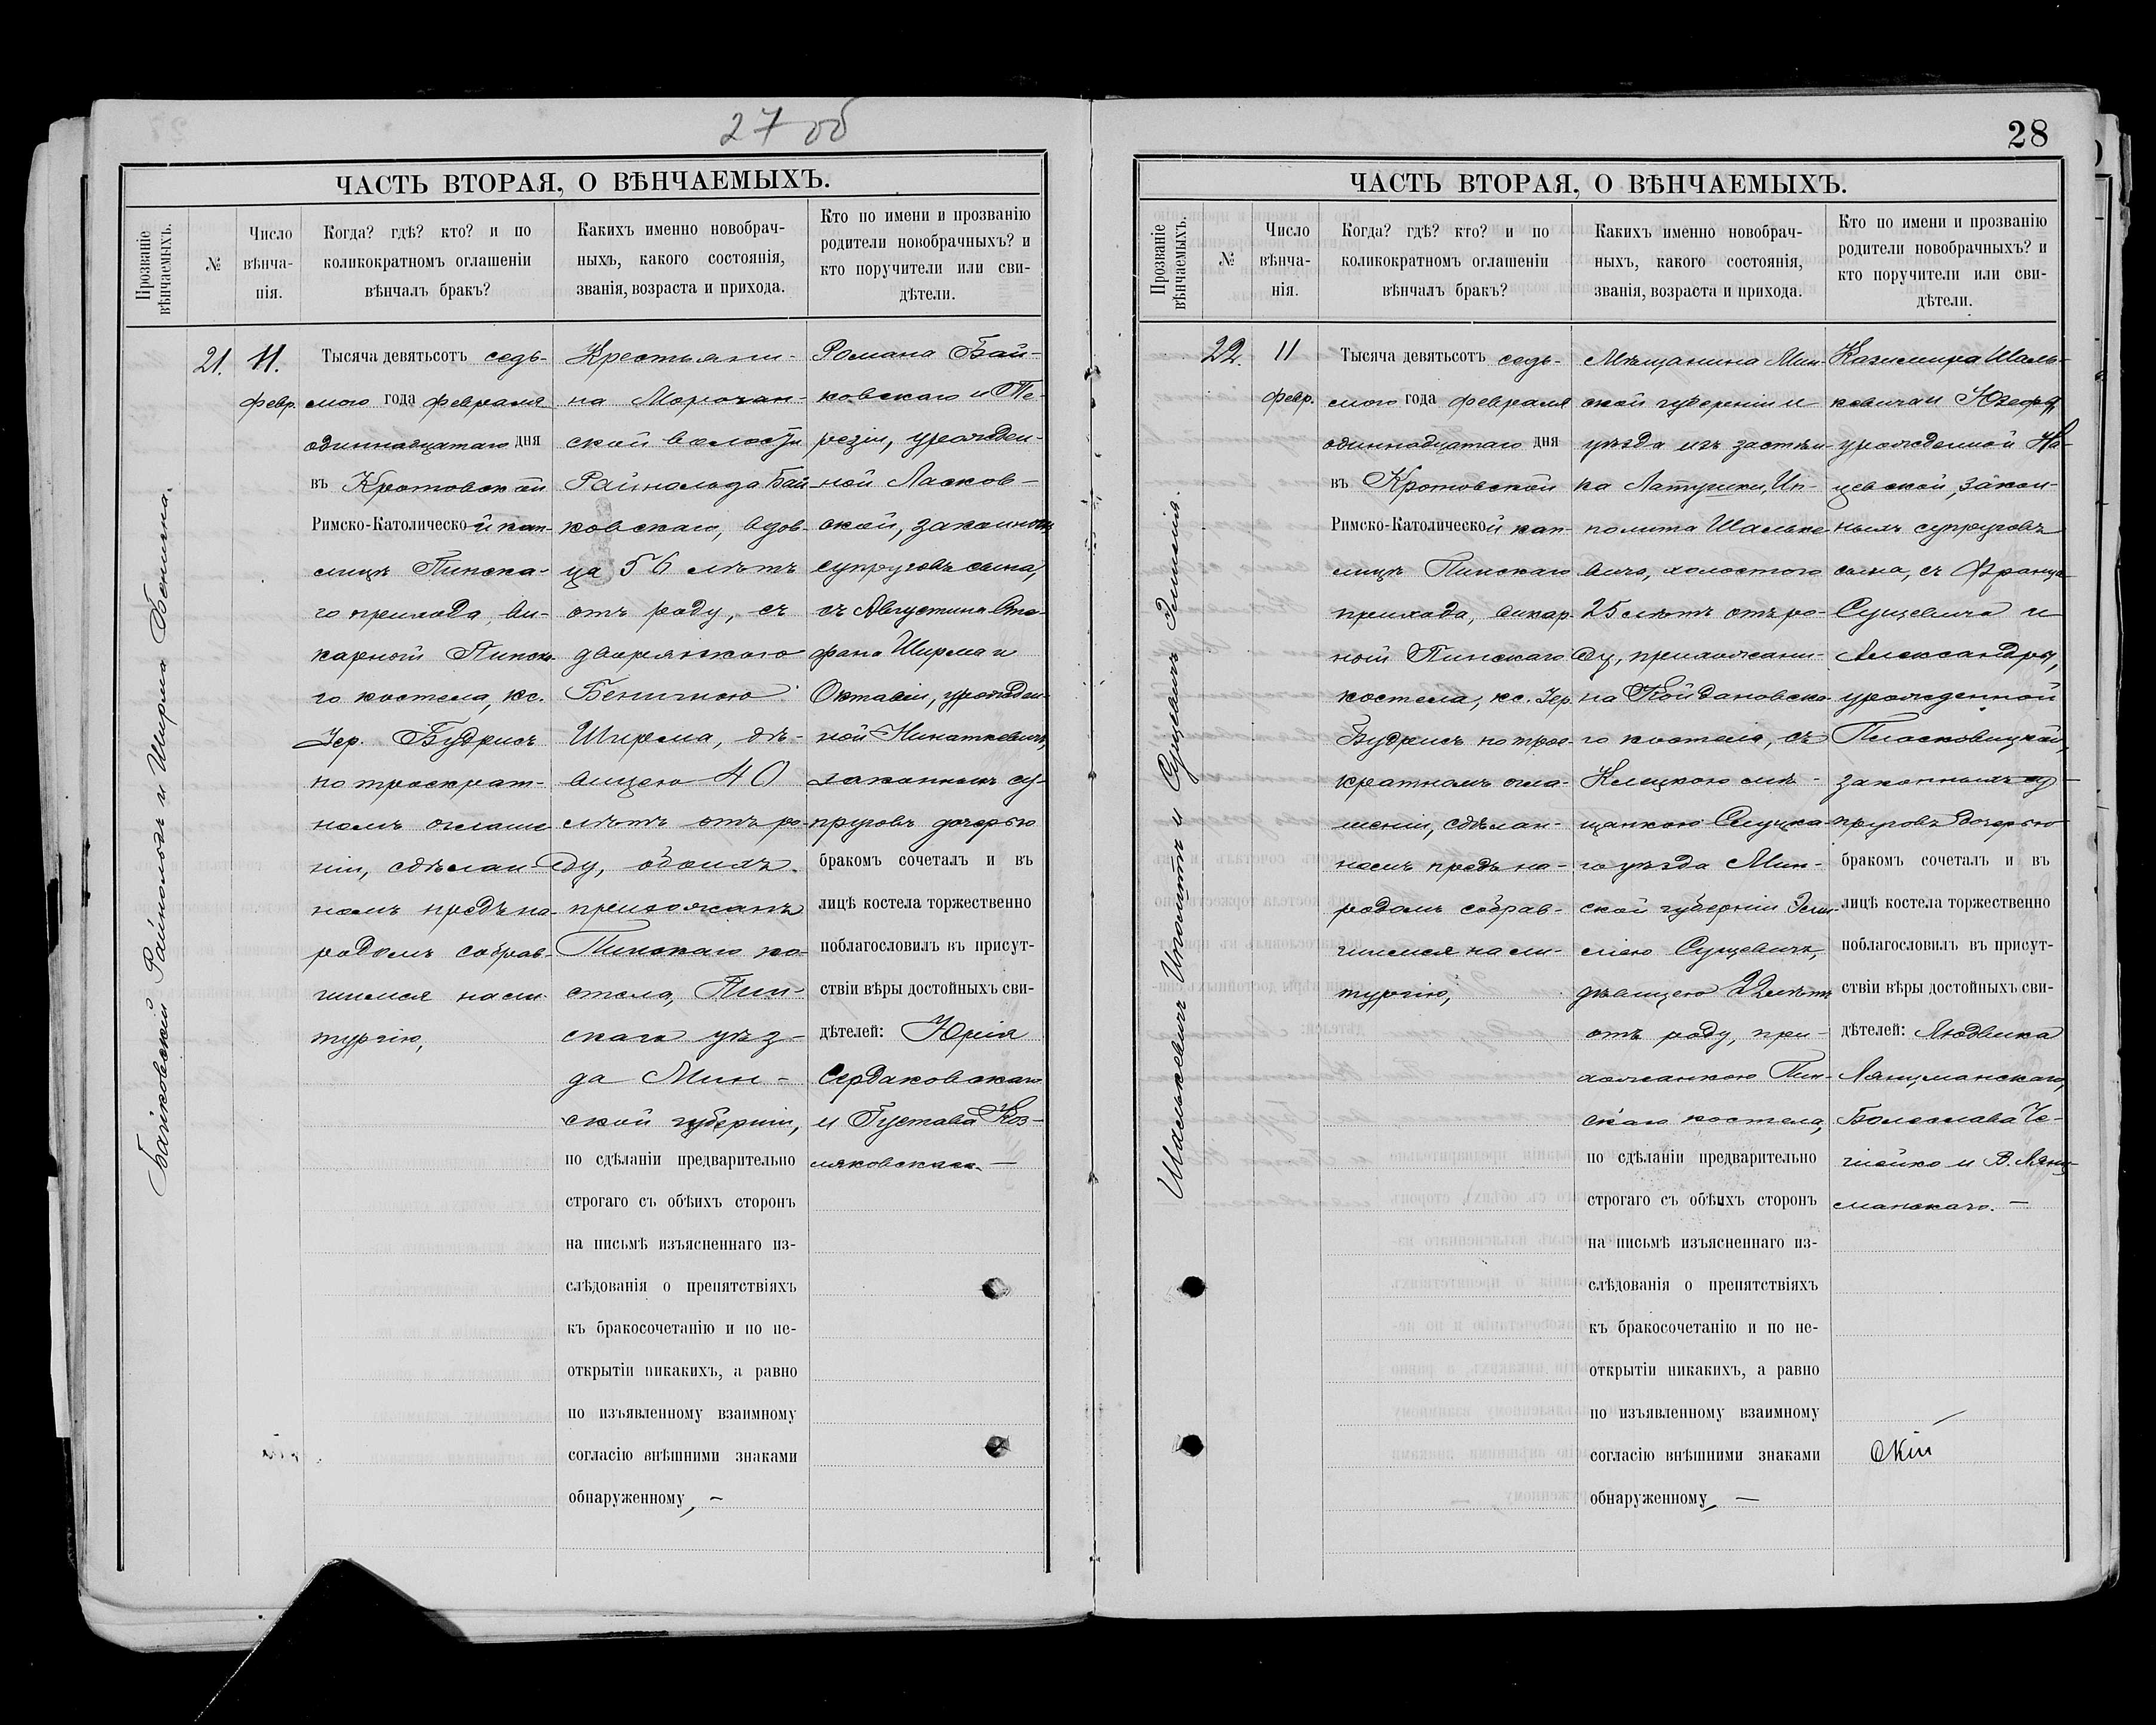 27 об
ЧАСТЬ ВТОРАЯ, О ВѢНЧАЕМЫХЪ.
Прозваніе
вѣнчаемыхъ.
№
Число
вѣнча-
нія.
Когда? гдѣ? кто? и по
коликократномъ оглашеніи
вѣнчалъ бракъ?
Какихъ именно новобрач-
ныхъ, какого состоянія,
званія, возраста и прихода.
Кто по имени и прозванію
родители новобрачныхъ? и
кто поручители или сви-
дѣтели.
Байковскій Райнольдъ и Ширма Бенигна.
21.
11.
февр.
Тысяча девятьсотъ седь-
мого года февраля
одиннадцатаго дня
въ Кротовской
Римско-Католической кап-
лицѣ Пинска-
го прихода, ви-
карной Пинска-
го костела, кс.
Іер. Будрисъ
по троекрат-
номъ оглаше-
ніи, сдѣлан-
номъ предъ на-
родомъ собрав-
шимся на ли-
тургію,
Крестьяни-
на Морочан-
ской волости
Райнольда Бай-
ковскаго, вдов-
ца 56 лѣтъ
отъ роду, съ
дворянкою
Бенигною
Ширма, дѣ-
вицею 40
лѣтъ отъ ро-
ду, обоихъ
прихожанъ
Пинскаго ко-
стела, Пин-
скаго уѣз-
да Мин-
ской губерніи,
по сдѣланіи предварительно
строгаго съ обѣихъ сторонъ
на письмѣ изъясненнаго из-
слѣдованія о препятствіяхъ
къ бракосочетанію и по не-
открытіи никакихъ, а равно
по изъявленному взаимному
согласію внѣшними знаками
обнаруженному, —
Романа Бай-
ковскаго и Те-
резіи, урожден-
ной Ласков-
ской, законныхъ
супруговъ сына,
съ Августина-Сте-
фана Ширма и
Октавіи, урожден-
ной
законныхъ су-
пруговъ дочерью
бракомъ сочеталъ и въ
лицѣ костела торжественно
поблагословилъ въ присут-
ствіи вѣры достойныхъ сви-
дѣтелей: Юрія
Сердаковскаго
и Густава Коз-
ляковскаго. —
28
ЧАСТЬ ВТОРАЯ, О ВѢНЧАЕМЫХЪ.
Прозваніе
вѣнчаемыхъ.
№
Число
вѣнча-
нія.
Когда? гдѣ? кто? и по
коликократномъ оглашеніи
вѣнчалъ бракъ?
Какихъ именно новобрач-
ныхъ, какого состоянія,
званія, возраста и прихода.
Кто по имени и прозванію
родители новобрачныхъ? и
кто поручители или сви-
дѣтели.
Шалькевичъ Ипполитъ и Сущевичъ Эмилія.
22.
11
февр.
Тысяча девятьсотъ седь-
мого года февраля
одиннадцатаго дня
въ Кротовской
Римско-Католической кап-
лицѣ Пинскаго
прихода, викар-
ной Пинскаго
костела, кс. Іер.
Будрисъ по трое-
кратномъ огла-
шеніи, сдѣлан-
номъ предъ на-
родомъ собрав-
шимся на ли-
тургію,
Мѣщанина Мин-
ской губерніи и
уѣзда изъ застѣн-
ка Латушки, Ип-
полита Шальке-
вича, холостого
25 лѣтъ отъ ро-
ду, прихожани-
на Койдановска-
го костела, съ
Клецкою мѣ-
щанкою Слуцка-
го уѣзда Мин-
ской губерніи Эми-
ліею Сущевичъ,
дѣвицею 22 лѣтъ
отъ роду, при-
хожанкою Пин-
скаго костела,
по сдѣланіи предварительно
строгаго съ обѣихъ сторонъ
на письмѣ изъясненнаго из-
слѣдованія о препятствіяхъ
къ бракосочетанію и по не-
открытіи никакихъ, а равно
по изъявленному взаимному
согласію внѣшними знаками
обнаруженному, —
Казимира Шаль-
кевича и Юзефы,
урожденной
закон-
ныхъ супруговъ
сына, съ Франца
Сущевича и
Александры,
урожденной
Пласковицкой,
законныхъ су-
пруговъ дочерью
бракомъ сочеталъ и въ
лицѣ костела торжественно
поблагословилъ въ присут-
ствіи вѣры достойныхъ сви-
дѣтелей: Людвика
Лянцманскаго,
Болеслава Че-
чейко и В. Лянц-
манскаго. —